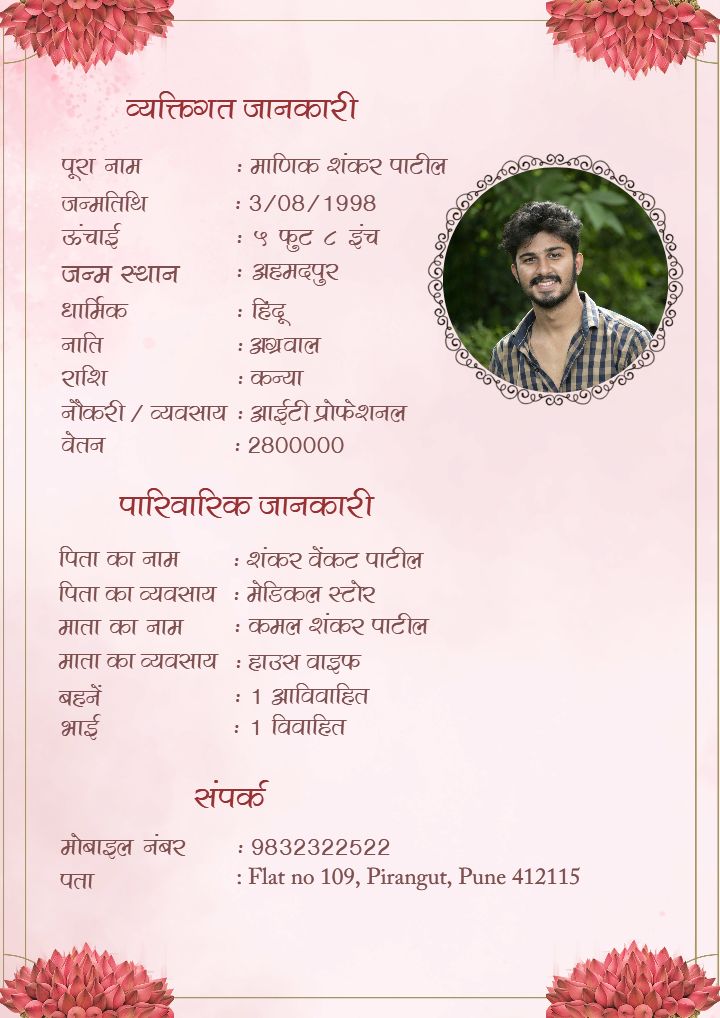 व्यक्तिगत जानकारी
पूरा नाम : माणिक शंकर पाटील
जन्मतिथि : 3/08/1998
ऊंचाई : ५ फुट ८ इंच
जन्म स्थान : अहमदपुर
धार्मिक : हिंदू
नाति : अग्रवाल
राशि : कन्या
नौकरी / व्यवसाय : आईटी प्रोफेशनल
वेतन : 2800000
पारिवारिक जानकारी
पिता का नाम : शंकर वेंकट पाटील
पिता का व्यवसाय : मेडिकल स्टोर
माता का नाम : कमल शंकर पाटील
माता का व्यवसाय : हाउस वाइफ
बहनें : 1 आविवाहित
भाई : 1 विवाहित
संपर्क
मोबाइल नंबर : 9832322522
पता : Flat no 109, Pirangut, Pune 412115